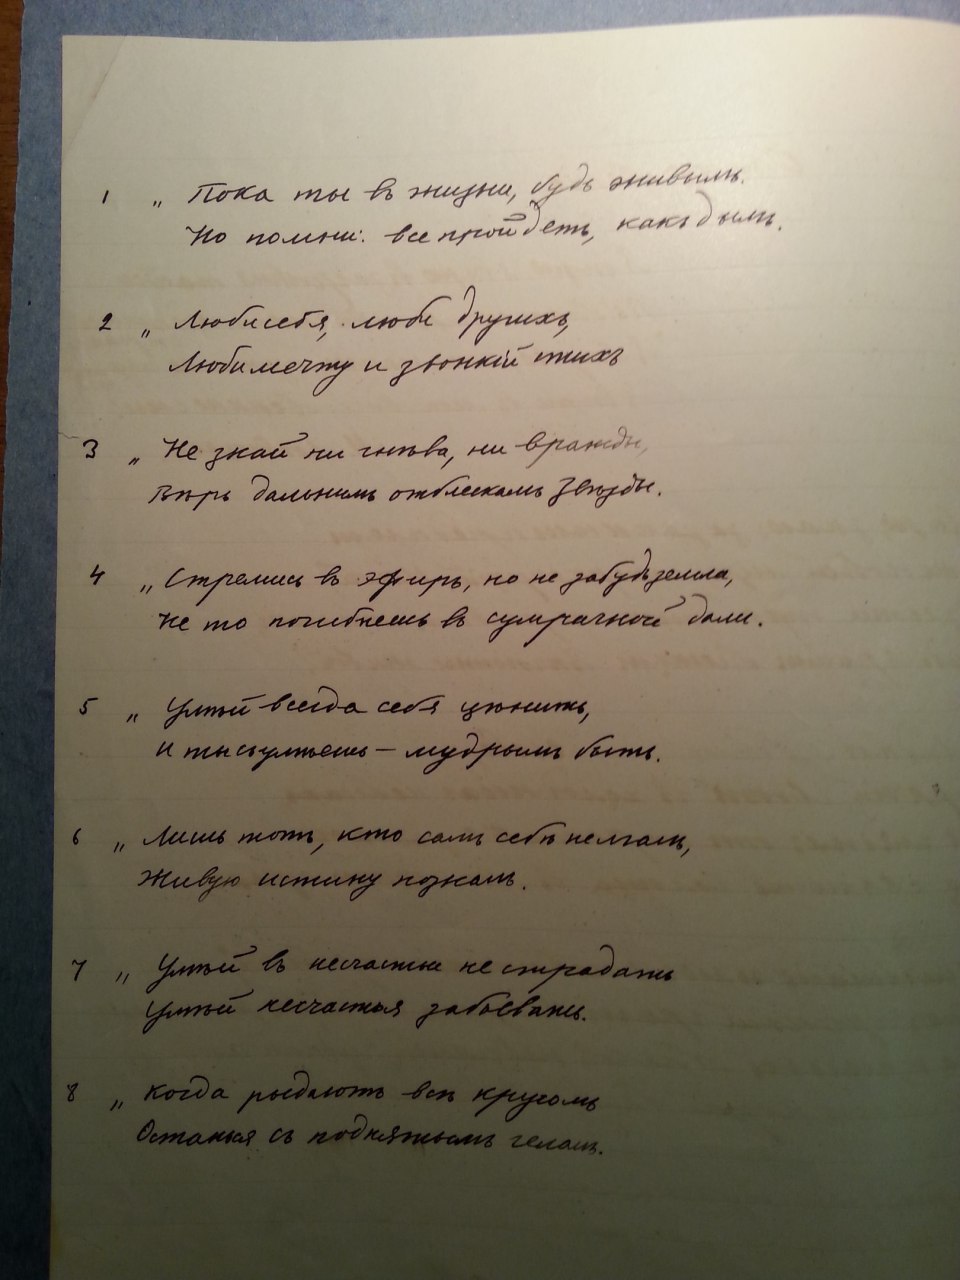 1 „ Пока ты въ жизни, будь живымъ.
Но помни: все пройдетъ, какъ дымъ.
2 „ Люби себя, люби другихъ,
Люби мечту и звонкій стихъ
3 „ Не знай ни гнѣва, ни вражды,
Вѣрь дальнимъ отблескамъ звѣзды.
4 „ Стремись въ эфиръ, но не забудь земли,
Не то погибнешь въ сумрачной дали.
5 „ Умѣй всегда себя цѣнить,
И ты съумѣешь – мудрымъ быть.
6 „ Лишь тотъ, кто самъ себѣ не лгалъ,
Живую истину позналъ.
7 „ Умѣй въ несчастьи не страдать
Умѣй несчастья забывать.
8 „ Когда рыдаютъ всѣ кругомъ
Останься съ поднятымъ челомъ.